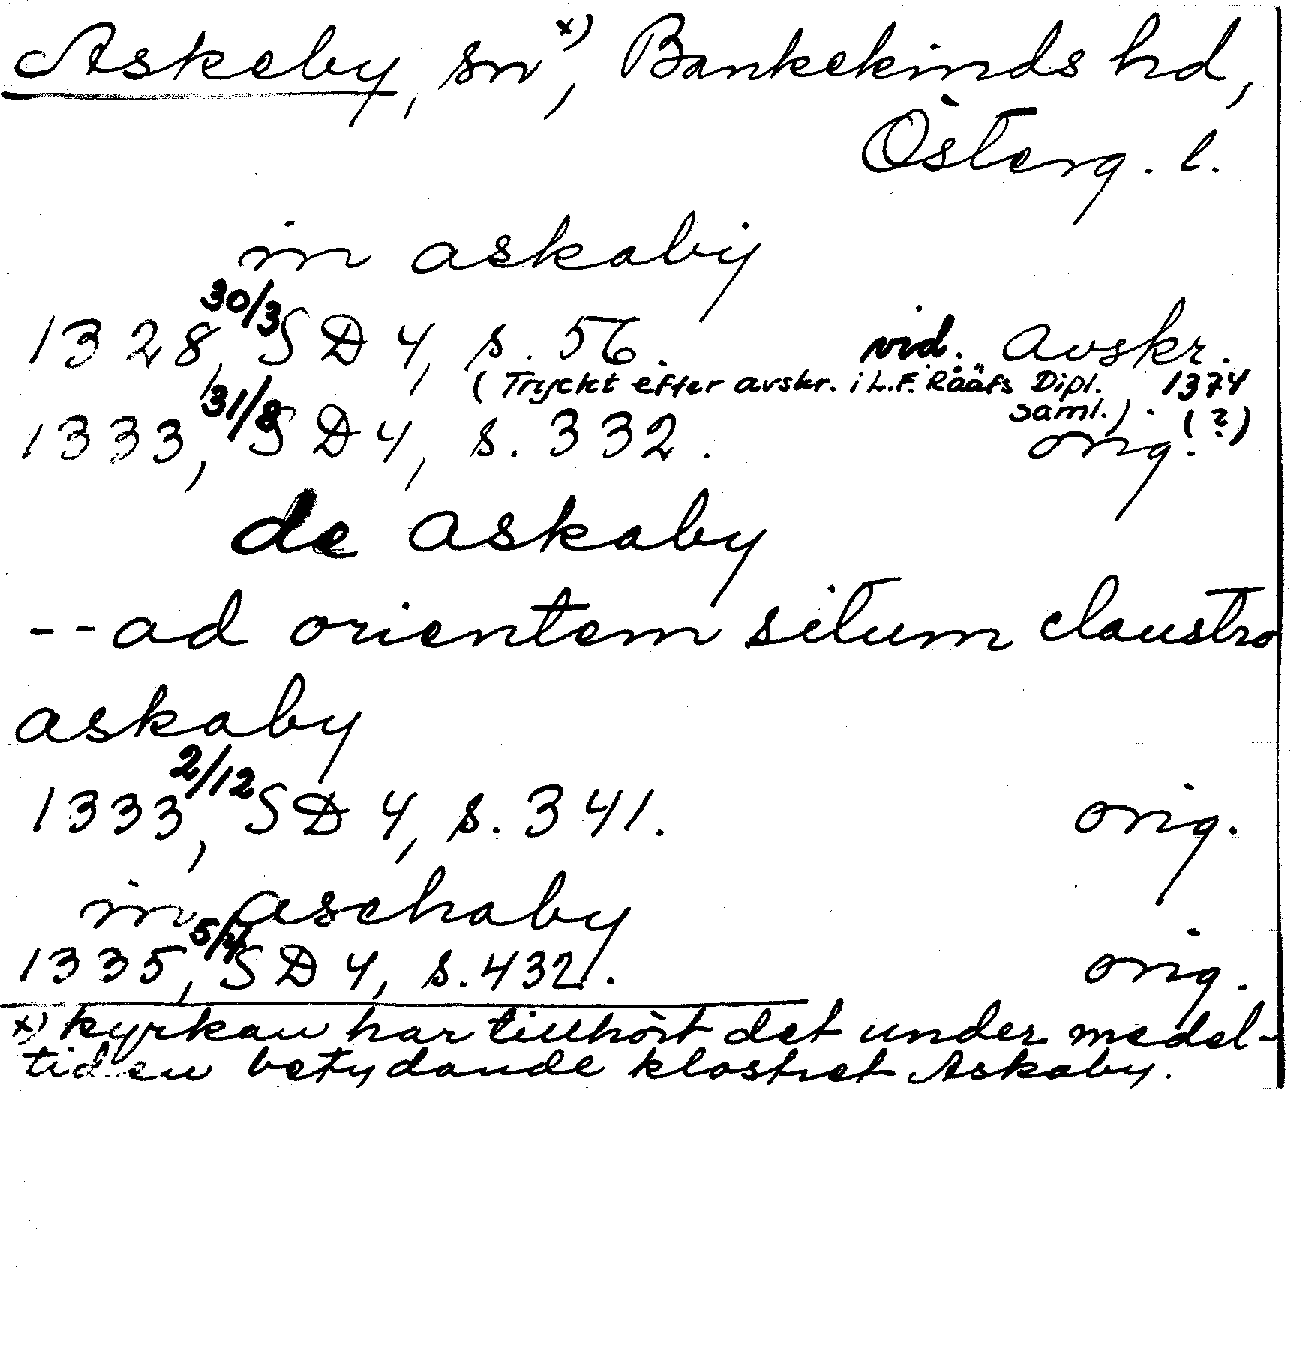 Askeby, sn x), Bankekinds hd,
Österg. l.
in askaby
1328, 30/3 SD 4, s. 56. vid. avskr.
(Tryckt efter avskr. i L.F. Rääfs Dipl. 1374
saml.). (?)
1333, 31/8 SD 4, s. 332. orig.
de askaby
-- ad orientem situm claustro
askaby
1333, 2/12 SD 4, s. 341. orig.
in aschaby
1335, SD 4, s. 432. orig.
x) kyrkan har tillhört det under medel-
tiden betydande klostret Askaby.